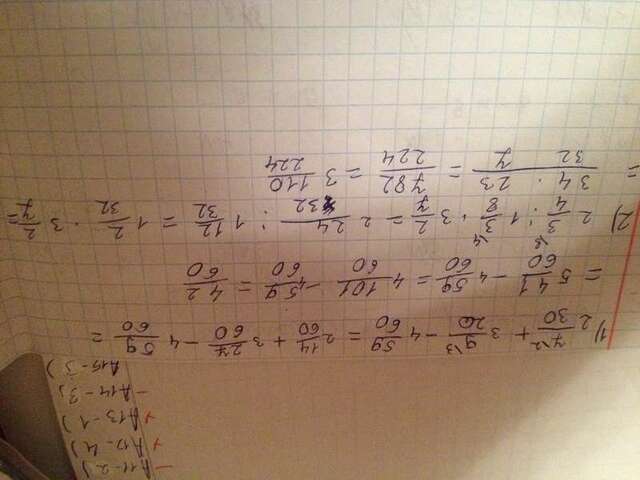 - A11-2)
× A12-4)
× A13-1)
- A14-3;
A15-3)
1) 2 7\2/30 + 3 9\3/20 - 4 59/60 = 2 14/60 + 3 27/60 - 4 59/60 =
= 5 41/60 - 4 59/60 = 4 101/60 - 4 59/60 = 42/60
2) 2 3\8/4 : 1 3\4/8 · 3 2/7 = 2 24/32 : 1 12/32 = 1 2/32 · 3 2/7 =
= 34 · 23/32 7 = 782/224 = 3 110/224